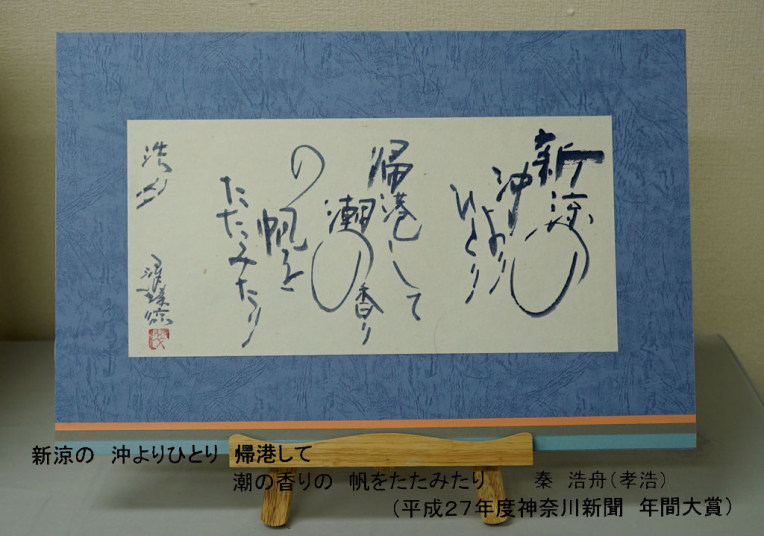 新涼の
沖より
ひとり
帰港して
潮の香り
の帆を
たたみたり
浩舟
新涼の 沖よりひとり 帰港して
潮の香りの 帆をたたみたり 秦 浩舟(孝浩)
(平成27年度神奈川新聞 年間大賞)